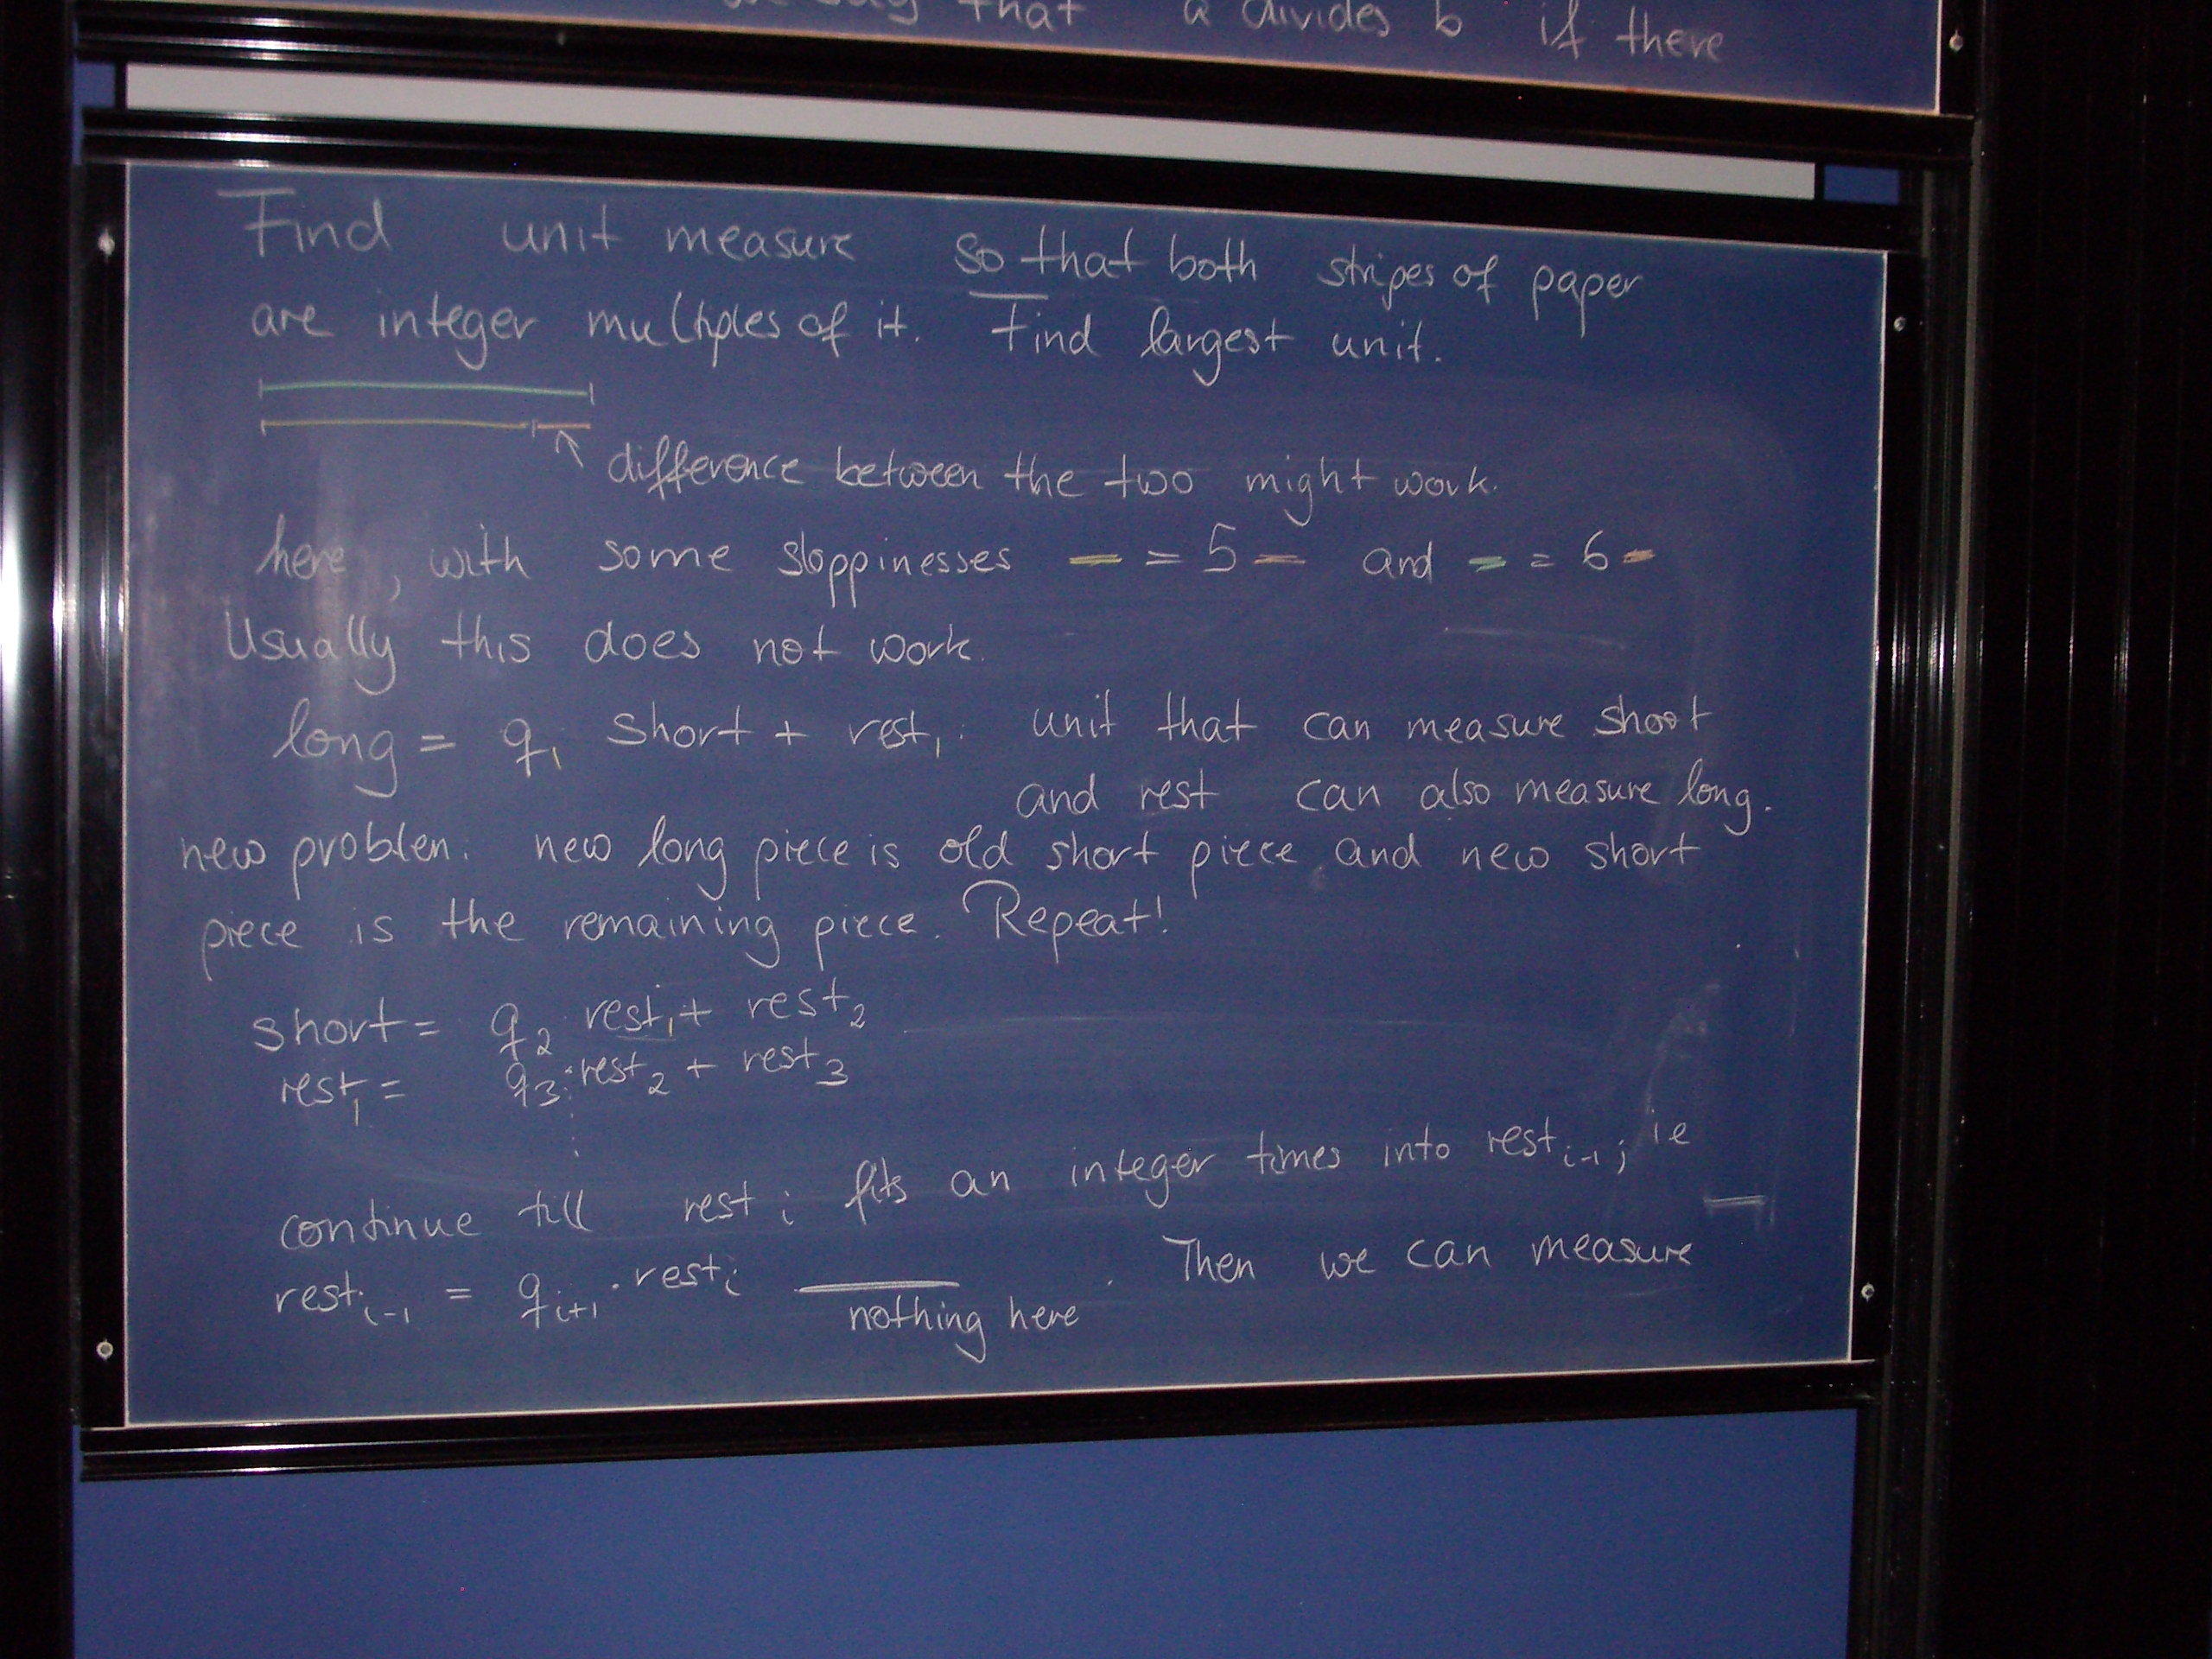 that a divides b if there
Find unit measure so that both stripes of paper
are integer multiples of it. Find largest unit.
difference between the two might work.
here, with some sloppinesses — = 5 — and — = 6 —
Usually this does not work.
long = q₁ short + rest₁: unit that can measure short
and rest can also measure long.
new problem: new long piece is old short piece and new short
piece is the remaining piece. Repeat!
short = q₂ rest₁ + rest₂
rest₁ = q₃·rest₂ + rest₃
continue till rest i fits an integer times into rest i-1; ie
rest i-1 = q i+1 · rest i ——— . Then we can measure
nothing here